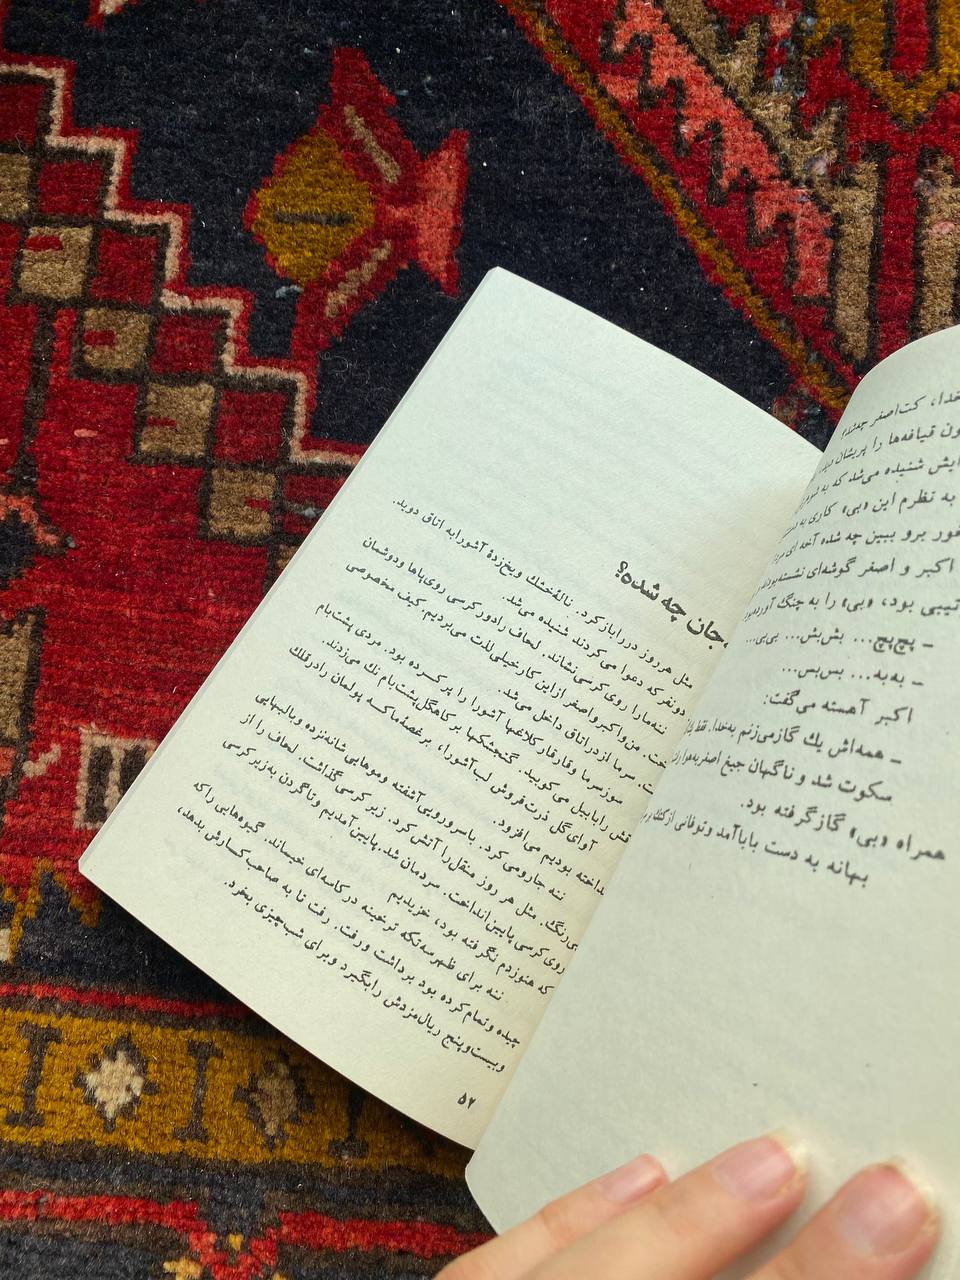 خدا، کت‌اصغر چه‌شده؟
ون قیافه‌ها را پریشان دید،
ایش شنیده می‌شد که به
به نظرم این «بی» کاری به
فور برو ببین چه شده آخه
اکبر و اصغر گوشه‌ای نشسته‌بودند
تیبی بود، «بی» را به چنگ آورده‌بود
– پچ‌پچ... بش‌بش... بی‌بی...
– به‌به... بس‌بس...
اکبر آهسته می‌گفت:
– همه‌اش یك گاز می‌زنم به‌خدا. فقط یك
سکوت شد و ناگهان جیغ اصغر به‌هوا
همراه «بی» گاز گرفته بود.
بهانه به دست بابا آمد و توفانی از کتك
جان چه شده؟
مثل هر روز در را باز کرد. نالهٔ خشك و یخ‌زدهٔ آشورا به اتاق دوید.
دو نفر که دعوا می‌کردند شنیده می‌شد.
ننه ما را روی کرسی نشاند. لحاف را دور کرسی روی پاها و دوشمان
خت. من و اکبر و اصغر از این کار خیلی لذت می‌بردیم. کیف مخصوصی
ت. سرما از در اتاق داخل می‌شد.
سوز سرما و قار قار کلاغها آشورا را پر کرده بود. مردی پشت‌بام
قش را با بیل می‌کوبید. گنجشکها بر کاهگل پشت‌بام نك می‌زدند.
آوای گل ذرت‌فروش لب آشورا، بر غصهٔ ما که پولمان را در قلك
نداخته بودیم می‌افزود.
ننه جارو می‌کرد. با سر و رویی آشفته و موهایی شانه‌نزده و با لبهایی
ی‌رنگ. مثل هر روز منقل را آتش کرد. زیر کرسی گذاشت. لحاف را از
روی کرسی پایین انداخت. سردمان شد. پایین آمدیم و تا گردن به زیر کرسی
که هنوز دم نگرفته بود، خزیدیم
ننه برای ظهر سه تکه ترخینه در کاسه‌ای خیساند. گیوه‌هایی را که
چیده و تمام کرده بود برداشت و رفت. رفت تا به صاحب کسارش بدهد،
و بیست و پنج ریال مزدش را بگیرد و برای شب چیزی بخرد.
۵۲